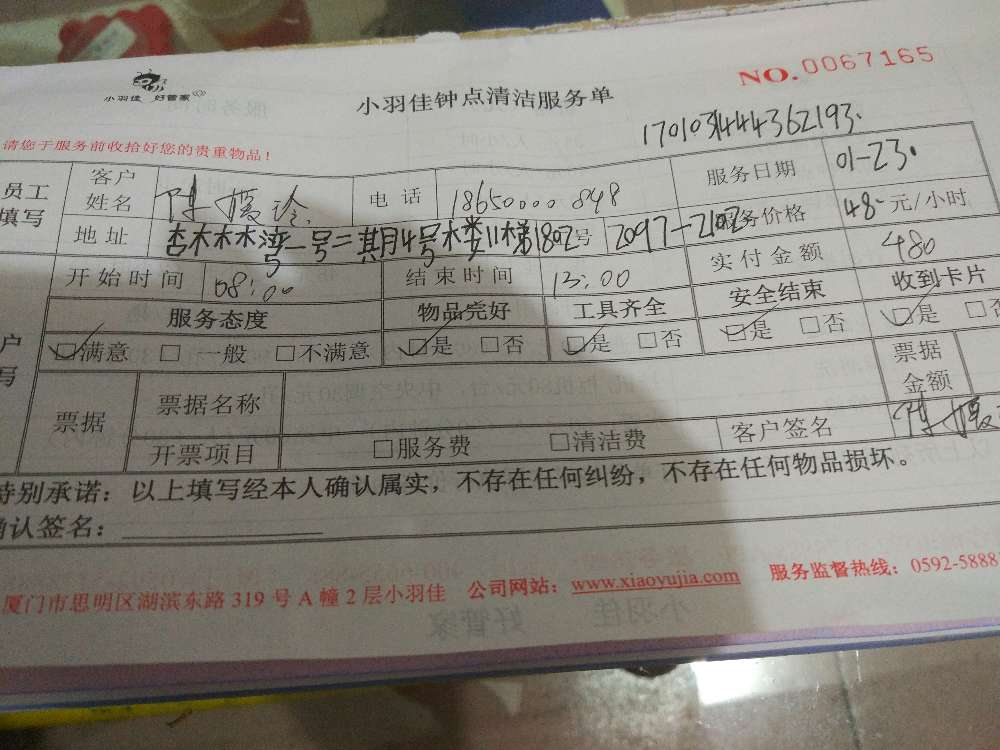 小羽佳 好管家
小羽佳钟点清洁服务单
NO.0067165
170103444362193.
请您于服务前收拾好您的贵重物品！
员工填写 客户姓名 陈 电话 18650000848 服务日期 01-23.
地址 杏林 一号二期4号楼 梯1802号 2097-2102 服务价格 48.元/小时
开始时间 08:00 结束时间 13:00 实付金额 480
服务态度 物品完好 工具齐全 安全结束 收到卡片
☑满意 □一般 □不满意 ☑是 □否 ☑是 □否 ☑是 □否 ☑是 □
户写 票据 票据名称 票据金额
开票项目 □服务费 □清洁费 客户签名 陈
特别承诺：以上填写经本人确认属实，不存在任何纠纷，不存在任何物品损坏。
确认签名：
厦门市思明区湖滨东路 319 号 A 幢 2 层小羽佳 公司网站：www.xiaoyujia.com 服务监督热线：0592-5888